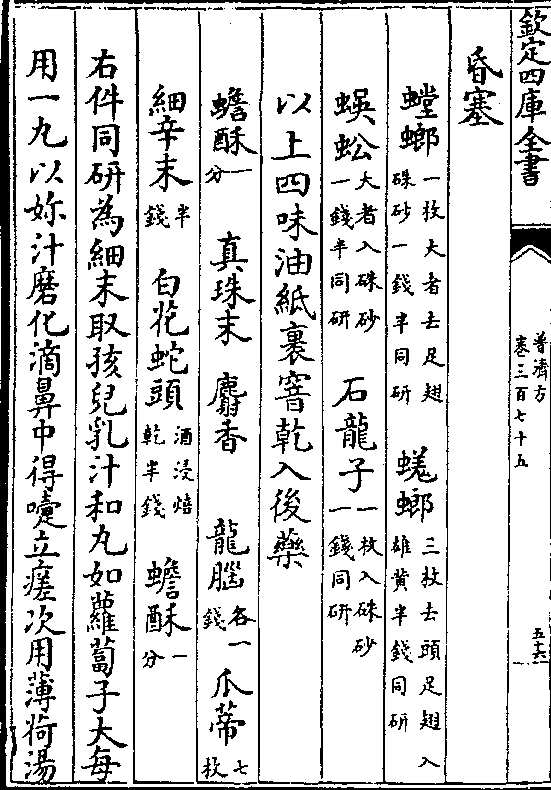 欽定四庫全書
普濟方
卷三百七十五
五十六
昏塞
螳螂一枚大者去足翅硃砂一錢半同研 蜣螂三枚去頭足翅入雄黄半錢同研
蜈蚣大者入硃砂一錢半同研 石龍子一枚入硃砂一錢同研
以上四味油紙裹窨乾入後藥
蟾酥一分 真珠末 麝香 龍腦各一錢 爪蒂七枚
細辛末半錢 白花蛇頭酒浸焙乾半錢 蟾酥一分
右件同研為細末取孩兒乳汁和丸如蘿蔔子大每
用一丸以妳汁磨化滴鼻中得嚏立瘥次用薄荷湯